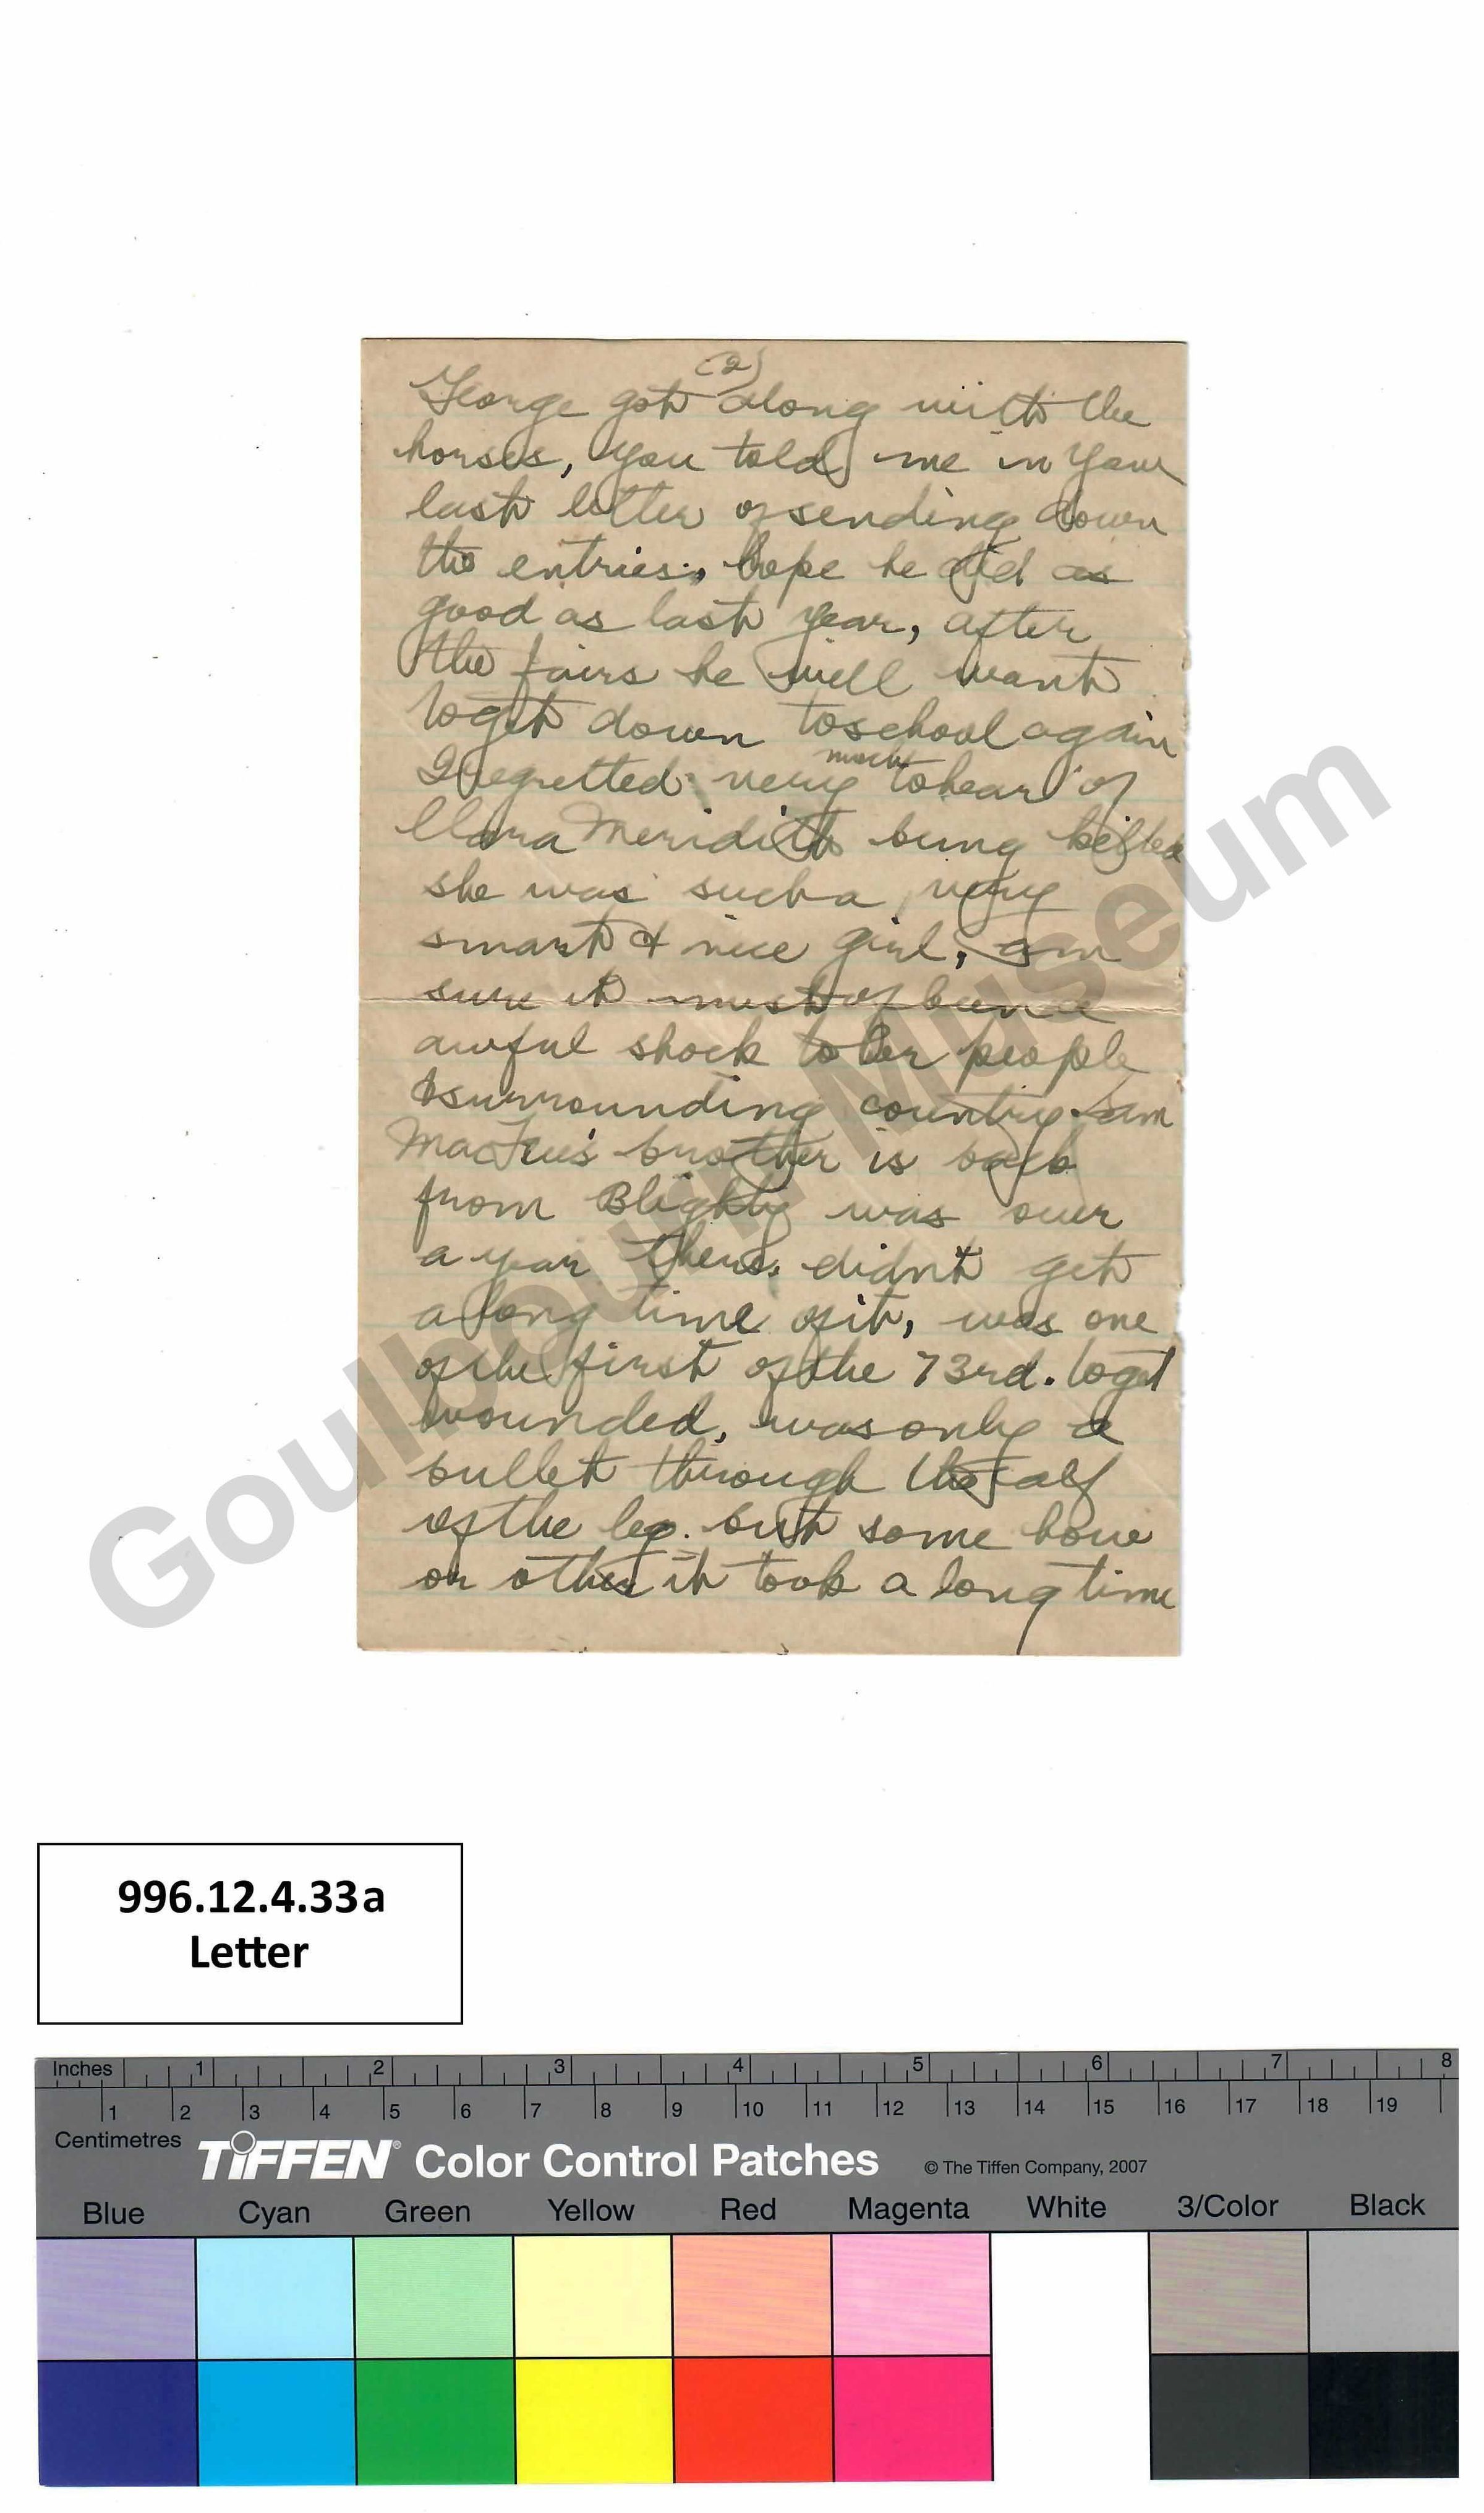 (2)
George got along with the
horses, you told me in your
last letter of sending down
the entries, hope he did as
good as last year, after
the fairs he will want
to get down to school again
I regretted very much to hear of
Clara Meridith being killed
she was such a very
smart & nice girl, am
sure it must of been a
awful shock to her people
& surrounding country. Sam
brother is back
from Blighty was over
a year there, didn't get
a long time of it, was one
of the first of the 73rd. to get
wounded, was only a
bullet through the calf
of the leg. but some how
or other it took a long time
Goulbourn Museum
996.12.4.33a
Letter
Inches 1 2 3 4 5 6 7 8
1 2 3 4 5 6 7 8 9 10 11 12 13 14 15 16 17 18 19
Centimetres
TIFFEN® Color Control Patches © The Tiffen Company, 2007
Blue Cyan Green Yellow Red Magenta White 3/Color Black